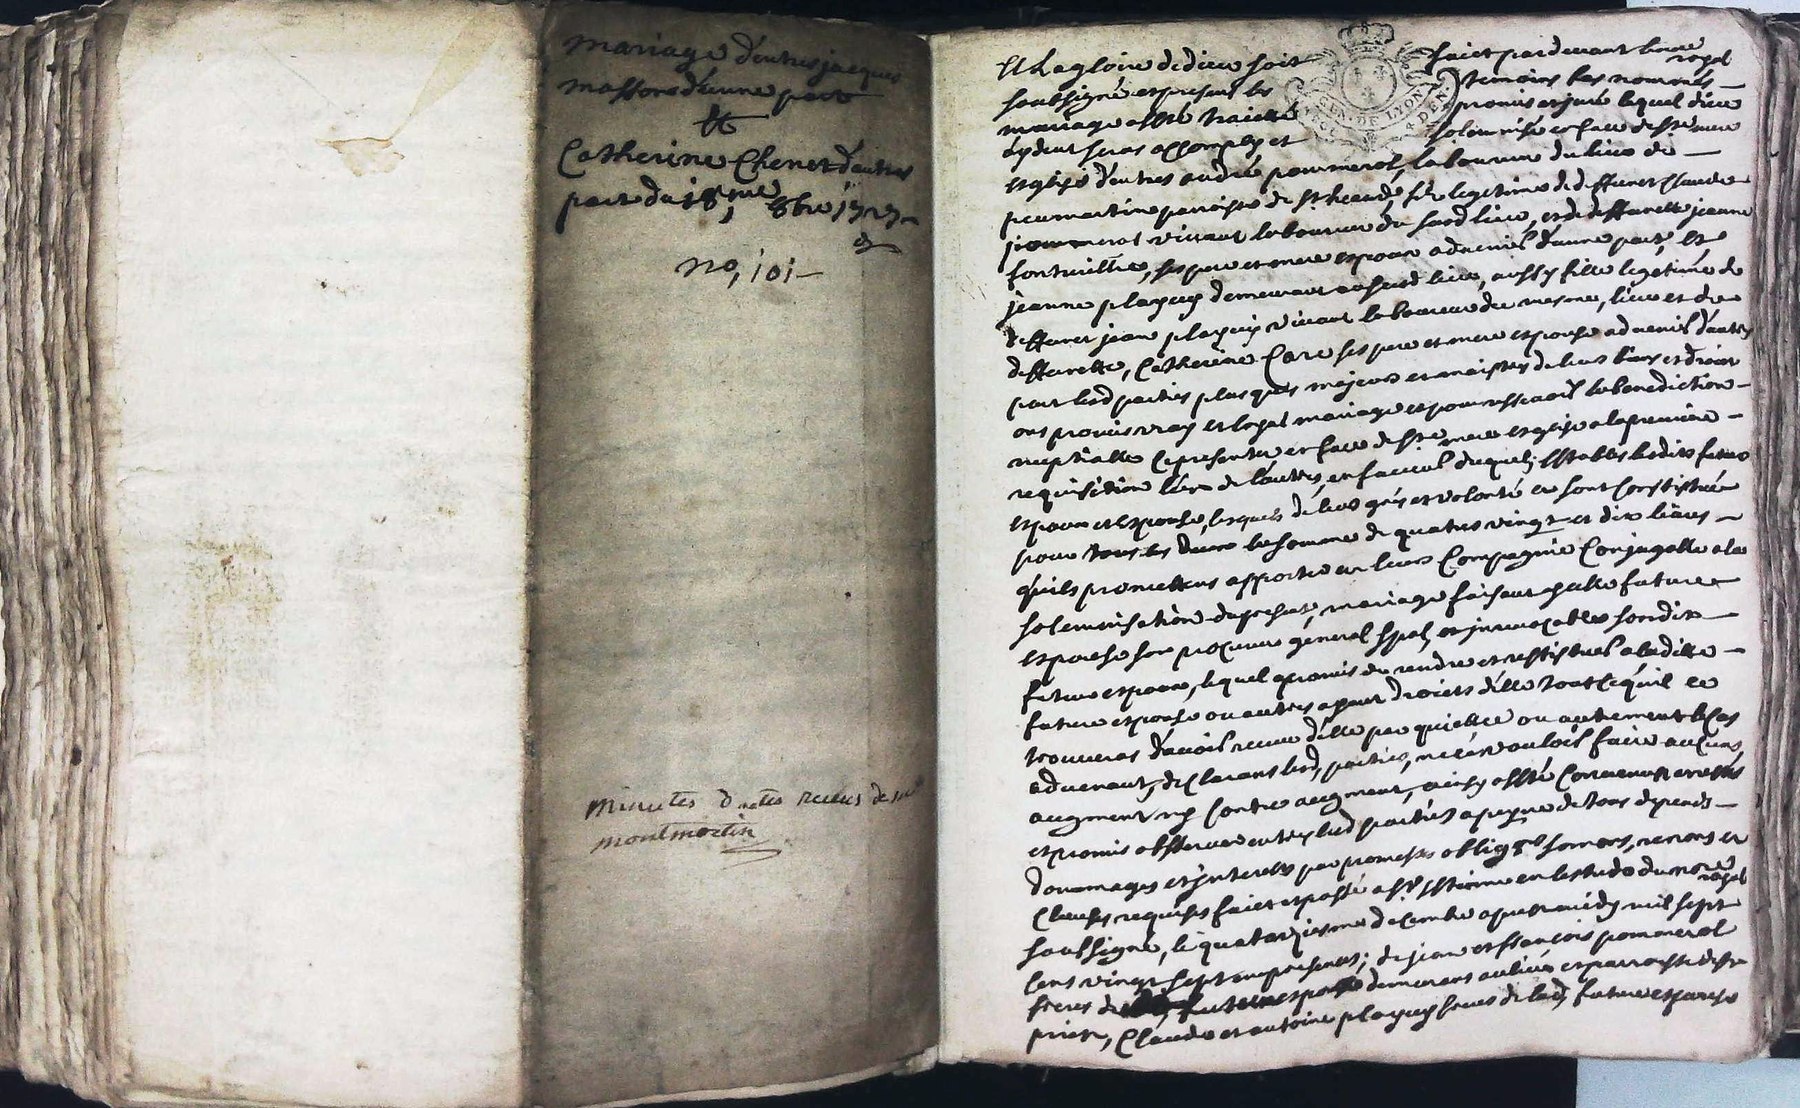 mariage d'entre jacques
masson d'une part
Et
Catherine Chenet d'autre
part du 18me 8bre 1727
no, 101
minutes d actes receus de me
montmartin
A la gloire de dieu soit faict pardevant le no.re royal
soubsigné et present les temoins bas nommés
mariage a esté traicté promis et juré lequel dieu
aydant seras accomply et solemnisé en face de ste mere
esglise d'entre andré pommerol, laboureur du lieu de
parroisse de st heand, fils legitime de deffunct Claude
pommerol vivant laboureur du susd lieu, et de deffuncte jeanne
ses pere et mere espoux advenir d'une part, Et
jeanne plagny demeurant au susd lieu, aussy fille legetime de
deffunct jean plagny vivant laboureur du mesme lieu et de
deffuncte, Catherine Core ses pere et mere espouse advenir d'autre
part lesd parties plus que majeurs et maistres de leurs biens et droicts
ont promis vray et loyal mariage et pour recevoir la benediction
nuptialle ce presenter en face de ste mere esglise a la premiere
requisition l'un de l'autre, en faveur duquel, establis lesdits futurs
espoux et espouse, lesquels de leurs grés et volonté ce sont constitués
pour tous les deux la somme de quatre vingt et dix livres
qu'ils promettent apporter en leurs Compagnie Conjugalle a la
solemnisation du present, mariage faisant ycelle future
espouse son procureur general spal, et jrrevocable sondit
futur espoux, lequel promis de rendre et restituer a ladite
future espouse ou autres ayant droicts d'elle tout ce qu'il ce
trouveras d'avoir receu d'elle par quittce ou autrement le cas
advenant, declarant lesd, parties, ne vouloir faire aucuns
augment ny contre augment, ainsy esté convenus arrestés
et promis observer entre lesd parties a peyne de tous depends
dommages et jnterests par promesses oblig.ons soumons, renons et
clauses requises faict et passé a st Estienne en l'estude du no.re royal
soussigné, le quatorziesme decembre apres midy mil sept
cens vingt sept en presences, de jean et françois pommerol
freres du futur espoux demeurans au lieu et parroisse de st
priest, Claude et antoine plagny freres de lad, future espouse